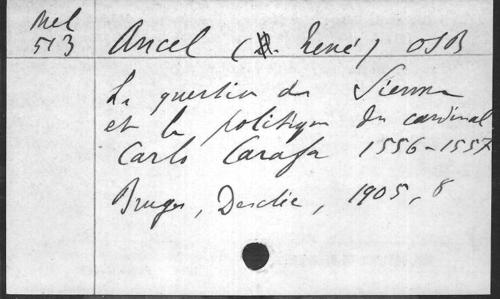 Mel
513
Ancel (D. René) OSB
La question de Sienne
et la politique du cardinal
Carlo Carafa 1556-1557
Bruges, Desclée, 1905, 8